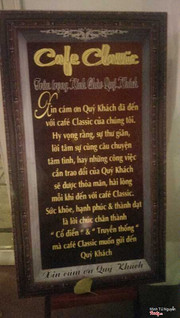 Cafe Classic
Trân trọng Kính Chào Quý Khách
Xin cám ơn Quý Khách đã đến
với café Classic của chúng tôi.
Hy vọng rằng, sự thư giãn,
lời tâm sự cùng câu chuyện
tâm tình, hay những công việc
cần trao đổi của Quý Khách
sẽ được thỏa mãn, hài lòng
mỗi khi đến với café Classic.
Sức khỏe, hạnh phúc & thành đạt
là lời chúc chân thành
" Cổ điển " & " Truyền thống "
mà café Classic muốn gửi đến
Quý Khách
Xin cám ơn Quý Khách